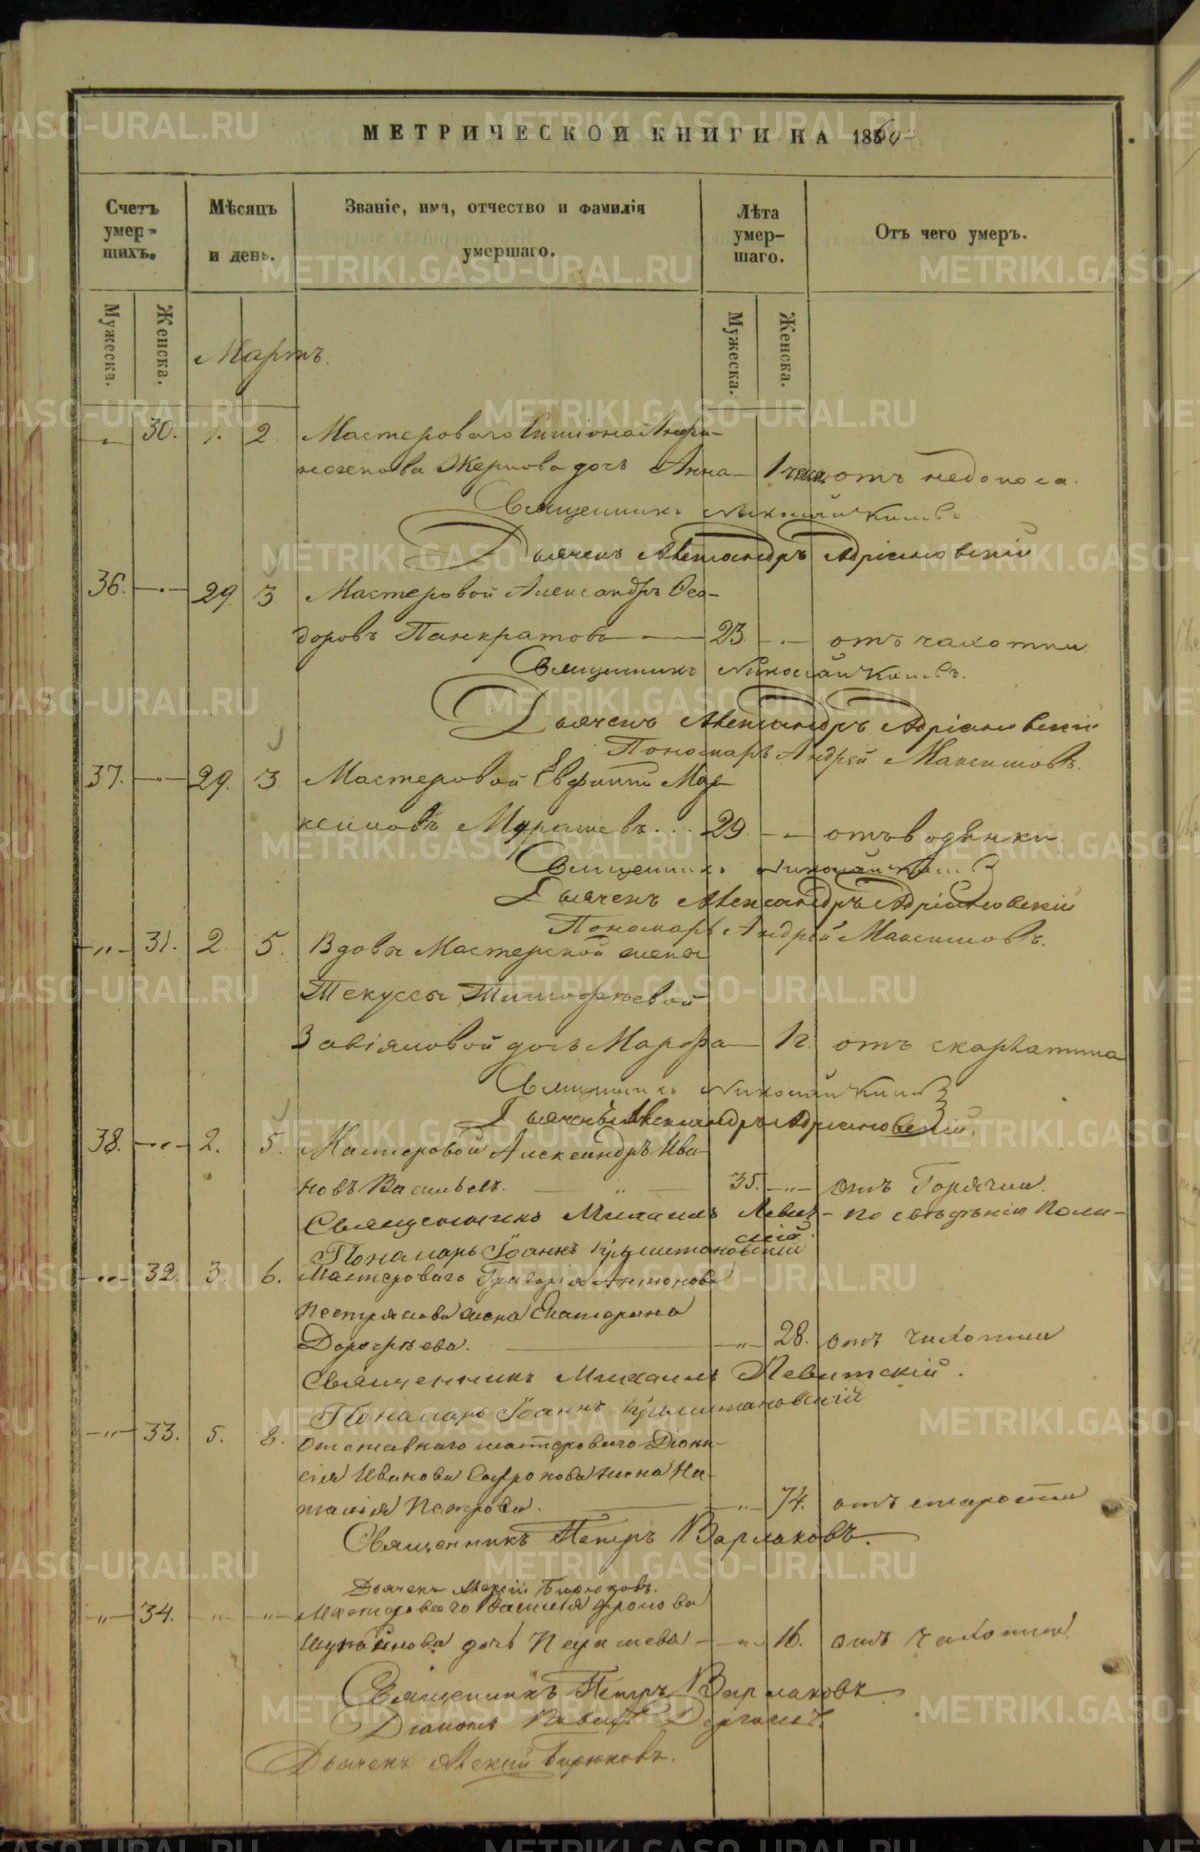 МЕТРИЧЕСКОЙ КНИГИ НА 1860
Счетъ умер-шихъ.
Мѣсяцъ и день.
Званіе, имя, отчество и фамилія умершаго.
Лѣта умер-шаго.
Отъ чего умеръ.
Мужеска. Женска. Мужеска. Женска.
Мартъ.
30. 1. 2. Мастероваго Симіона Анфи-
ногенова Жернова дочь Анна 1 отъ недоноса.
Священникъ Николай
Дьячекъ Александръ Адріановскій
36. 29. 3 Мастеровой Александръ Ѳео-
доровъ Панкратовъ 23. отъ чахотки
Священникъ Николай
Дьячекъ Александръ Адріановскій
Пономарь Андрей Максимовъ.
37. 29. 3 Мастеровой Евфимій Мак-
симовъ 29. отъ водянки
Священникъ Николай
Дьячекъ Александръ Адріановскій
Пономарь Андрей Максимовъ.
31. 2. 5. Вдовы Мастерской жены
Текуссы Тимофѣевой
дочь Марфа 1 г. отъ скарлатина
Священникъ Николай
Дьячекъ Александръ Адріановскій.
38. 2. 5. Мастеровой Александръ Ива-
новъ Васильевъ. 35. отъ Горячки.
Священникъ Михаилъ Левит-
скій. По свѣдѣнію Поли-
Пономарь Іоаннъ
32. 3. 6. Мастероваго Григорія Антонова
жена Екатерина
Дорофѣева. 28. отъ чахотки
Священникъ Михаилъ Левитскій.
Пономарь Іоаннъ
33. 5. 8. Отставнаго мастероваго Діони-
сія Иванова Сафронова жена На-
талія Петрова. 74. отъ старости
Священникъ Петръ Варлаковъ.
Дьячекъ Алексій Бирюковъ.
34. Мастероваго Василія Фролова
дочь 16. отъ чахотки.
Священникъ Петръ Варлаковъ
Діаконъ
Дьячекъ Алексій Бирюковъ.
METRIKI.GASO-URAL.RU